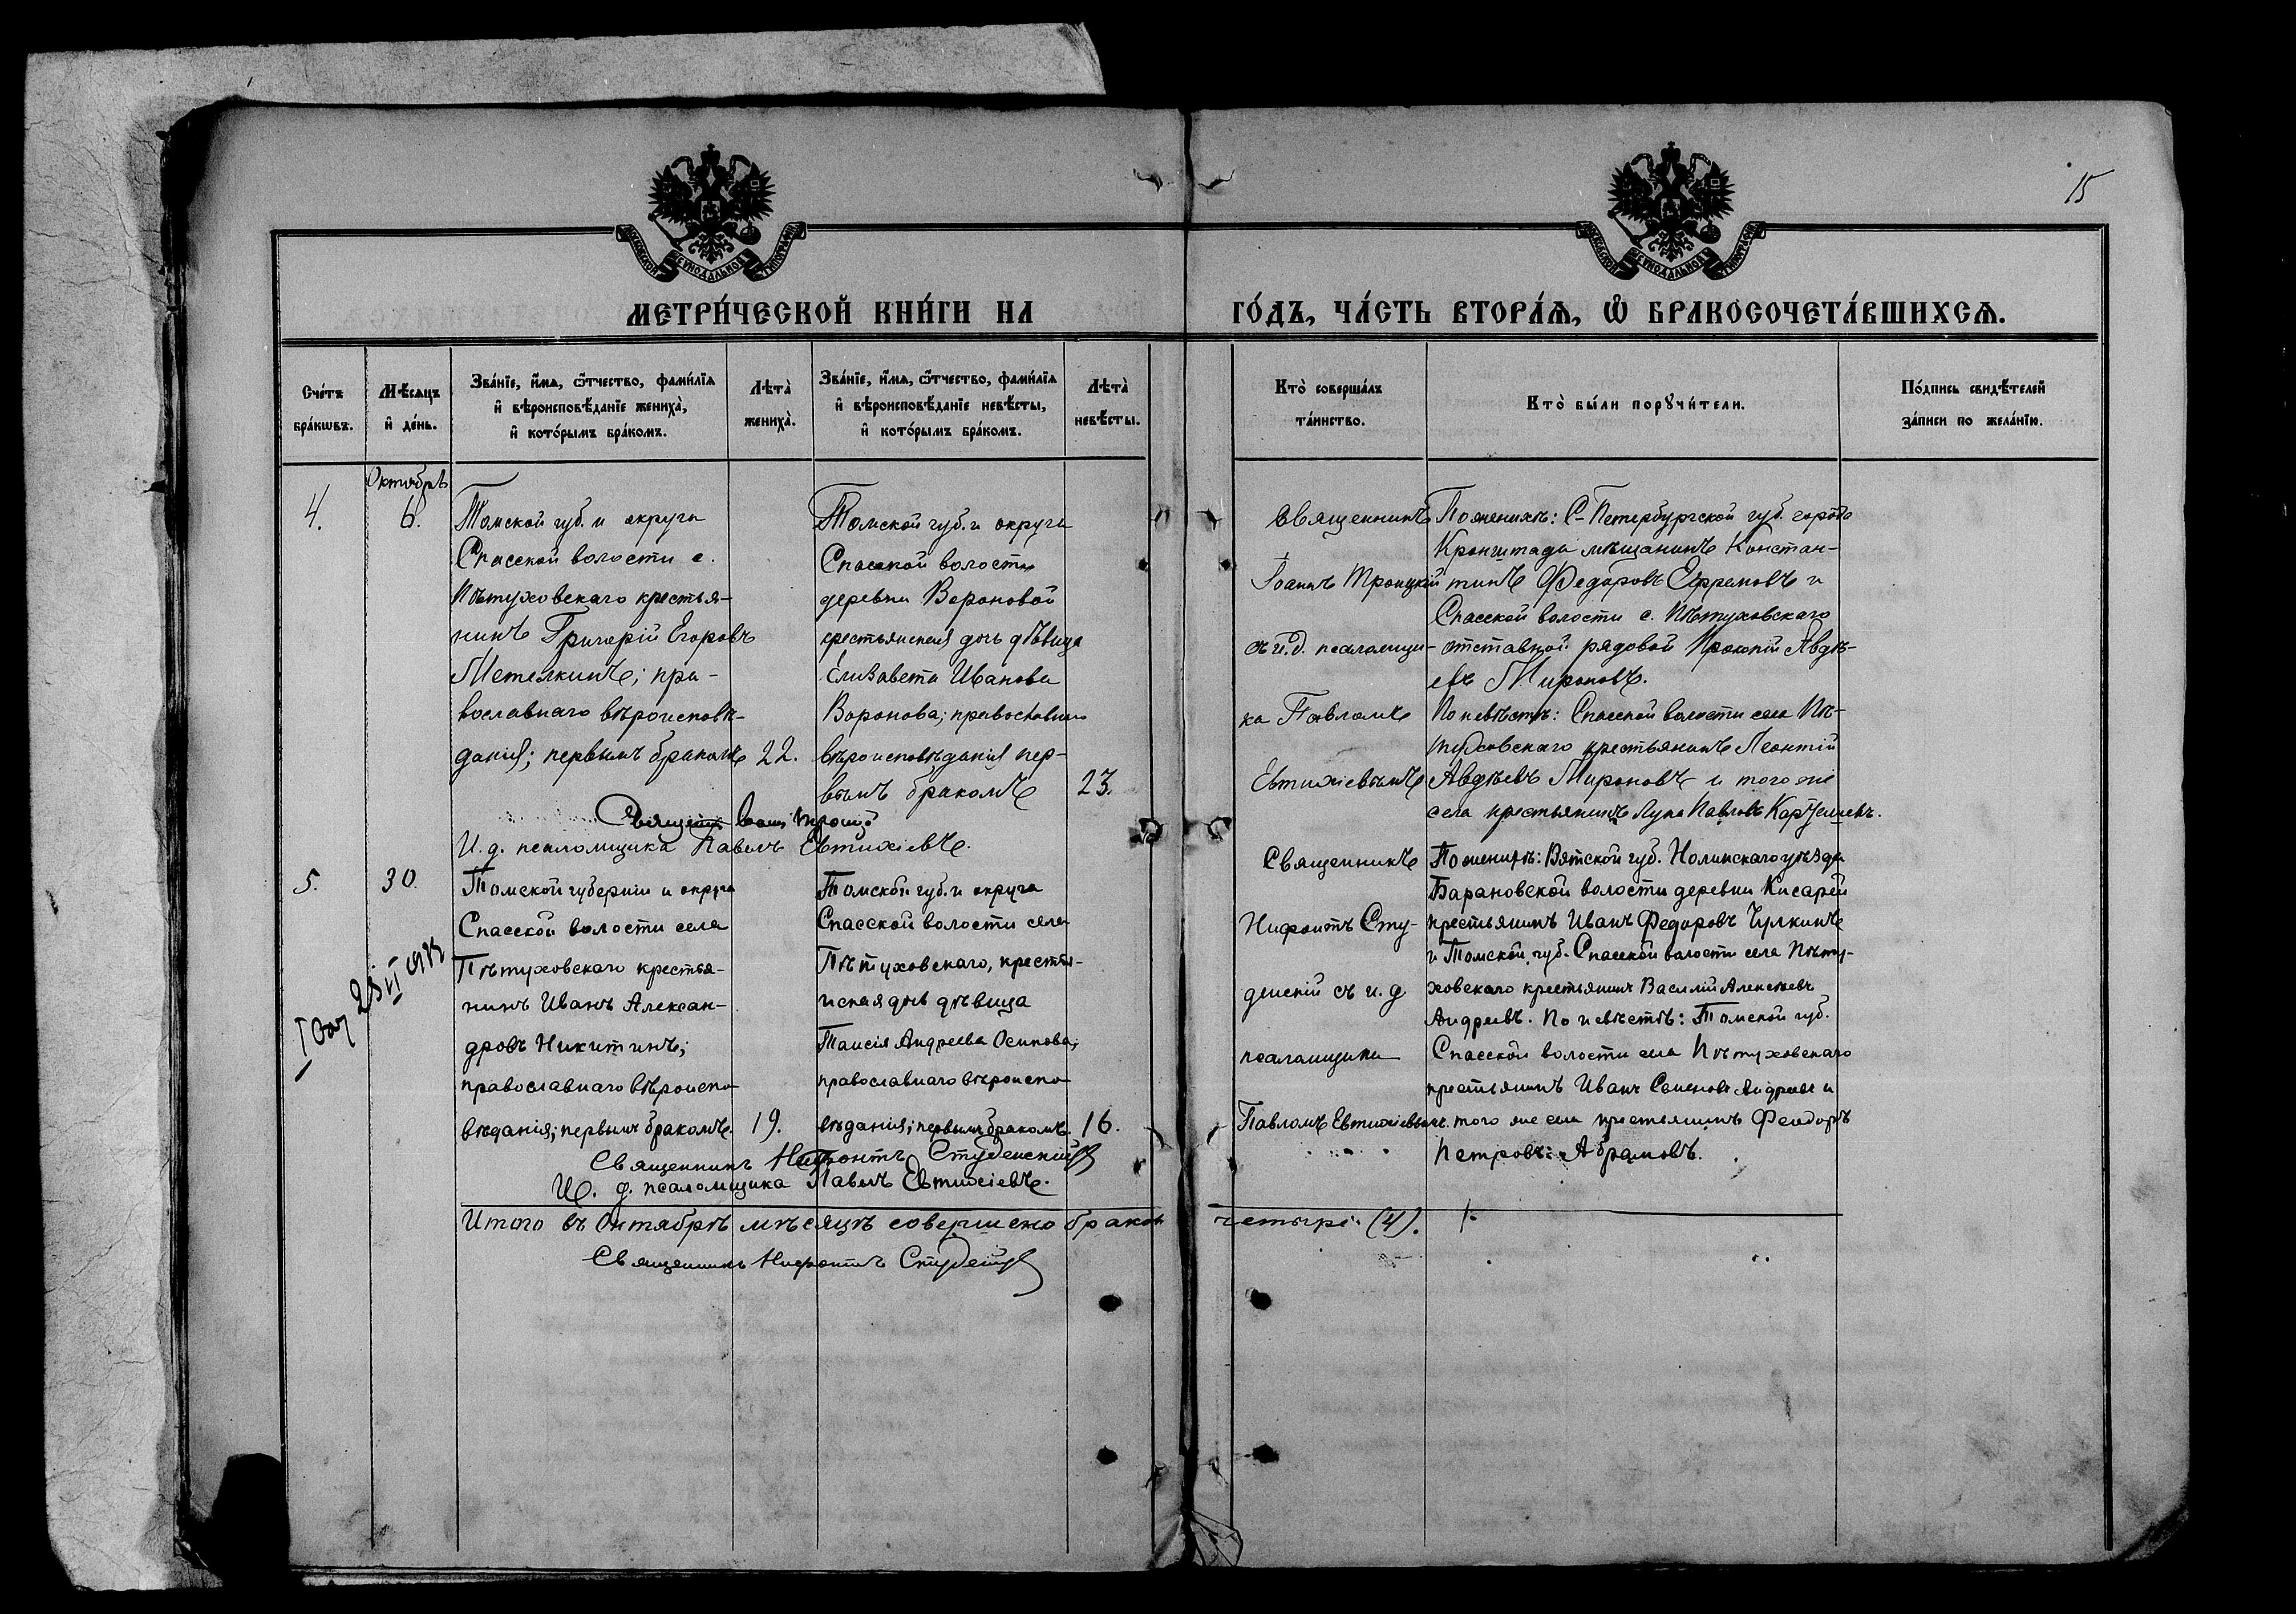 15
МОСКОВСКОЙ СѴНОДАЛЬНОЙ ТИПОГРАФІИ
МОСКОВСКОЙ СѴНОДАЛЬНОЙ ТИПОГРАФІИ
МЕТРИ́ЧЕСКОЙ КНИ́ГИ НА ГО́ДЪ, ЧА́СТЬ ВТОРА́Ѧ, Ѡ҆ БРАКОСОЧЕТА́ВШИХСѦ.
Сче́тъ
бра́кѡвъ.
Мѣ́сѧцъ
и҆ де́нь.
Зва́нїе, и҆́мѧ, ѻ҆́тчество, фами́лїѧ
и҆ вѣроисповѣ́данїе жениха̀,
и҆ кото́рымъ бра́комъ.
Лѣта̀
жениха̀.
Зва́нїе, и҆́мѧ, ѻ҆́тчество, фами́лїѧ
и҆ вѣроисповѣ́данїе невѣ́сты,
и҆ кото́рымъ бра́комъ.
Лѣта̀
невѣ́сты.
Кто̀ соверша́лъ
та́инство.
Кто̀ бы́ли порꙋчи́тели.
По́дпись свидѣ́телей
за́писи по жела́нїю.
Октябрь
4.
6.
Томской губ. и округа
Спасской волости с.
Пѣтуховскаго крестья-
нинъ Григорій Егоровъ
Метелкинъ; пра-
вославнаго вѣроисповѣ-
данія; первымъ бракомъ
22.
Томской губ. и округа
Спасской волости
деревни Вороновой
крестьянская дочь дѣвица
Елизавета Иванова
Воронова; православнаго
вѣроисповѣданія пер-
вымъ бракомъ
23.
Священникъ
Іоаннъ Троицкій
съ и.д. псаломщи-
ка Павломъ
Евтихіевымъ
По женихѣ: С-Петербургской губ. города
Кронштада мѣщанинъ Констан-
тинъ Федоровъ Ефремовъ и
Спасской волости с. Пѣтуховскаго
отставной рядовой Прокопій Авдѣ-
евъ Мироновъ.
По невѣстѣ: Спасской волости села Пѣ-
туховскаго крестьянинъ Леонтій
Авдѣевъ Мироновъ и того же
села крестьянинъ Лука Павловъ
И. д. псаломщика Павелъ Евтихіевъ.
5.
30.
Томской губерніи и округа
Спасской волости села
Пѣтуховскаго крестья-
нинъ Иванъ Алексан-
дровъ Никитинъ;
православнаго вѣроиспо-
вѣданія; первымъ бракомъ.
19.
Томской губ. и округа
Спасской волости села
Пѣтуховскаго, крестья-
нская дочь дѣвица
Таисія Андреева Осипова;
православнаго вѣроиспо-
вѣданія; первымъ бракомъ.
16.
Священникъ
Нифонтъ Сту-
денскій съ и. д
псаломщика
Павломъ Евтихіевымъ.
По женихѣ: Вятской губ. Нолинскаго уѣзда
Барановской волости деревни
крестьянинъ Иванъ Федоровъ Чулкинъ
и Томской губ. Спасской волости села Пѣту-
ховскаго крестьянинъ Василій Алексѣевъ
Андреевъ. По невѣстѣ: Томской губ.
Спасской волости села Пѣтуховскаго
крестьянинъ Иванъ Семеновъ Андреевъ и
того же села крестьянинъ Феодоръ
Петровъ Абрамовъ.
Священникъ Нифонтъ Студенскій
И. д. псаломщика Павелъ Евтихіевъ.
Итого въ Октябрѣ мѣсяцѣ совершено браковъ четыре (4).
Священникъ Нифонтъ Студенскій